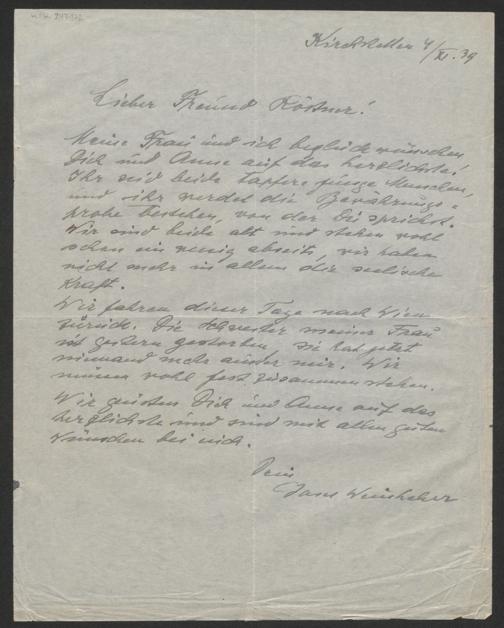 Kirchstetten 4/XI. 39
Lieber Freund Röstner!
Meine Frau und ich beglückwünschen
Dich und Anne auf das herzlichste!
Ihr seid beide tapfere junge Menschen,
und ihr werdet die Bewährungs-
probe bestehen, von der Du sprichst.
Wir sind beide alt und stehen wohl
schon ein wenig abseits, wir haben
nicht mehr in allem die seelische
Kraft.
Wir fahren dieser Tage nach Wien
zurück. Die Schwester meiner Frau
ist gestern gestorben. Sie hat jetzt
niemand mehr ausser mir. Wir
müssen wohl fest zusammenstehen.
Wir grüssen Dich und Anne auf das
herzlichste und sind mit allen guten
Wünschen bei euch.
Dein
Josef Weinheber